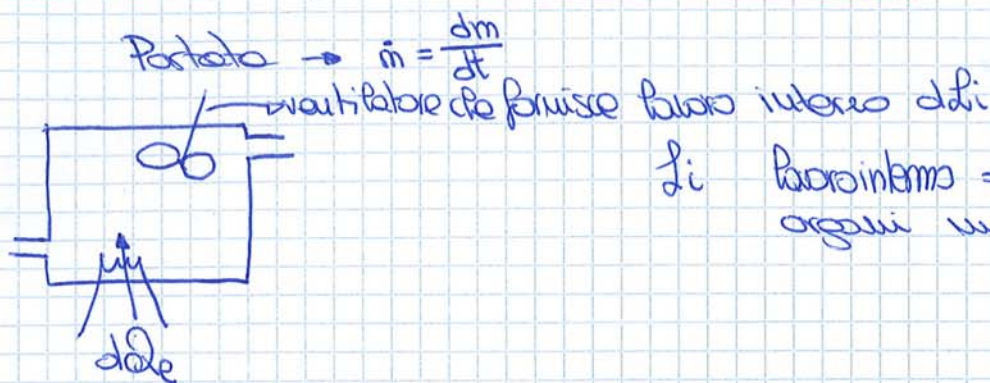 Portata → ṁ = dm/dt
ventilatore che fornisce lavoro interno dLi
Li lavoro interno =
organi
dQe